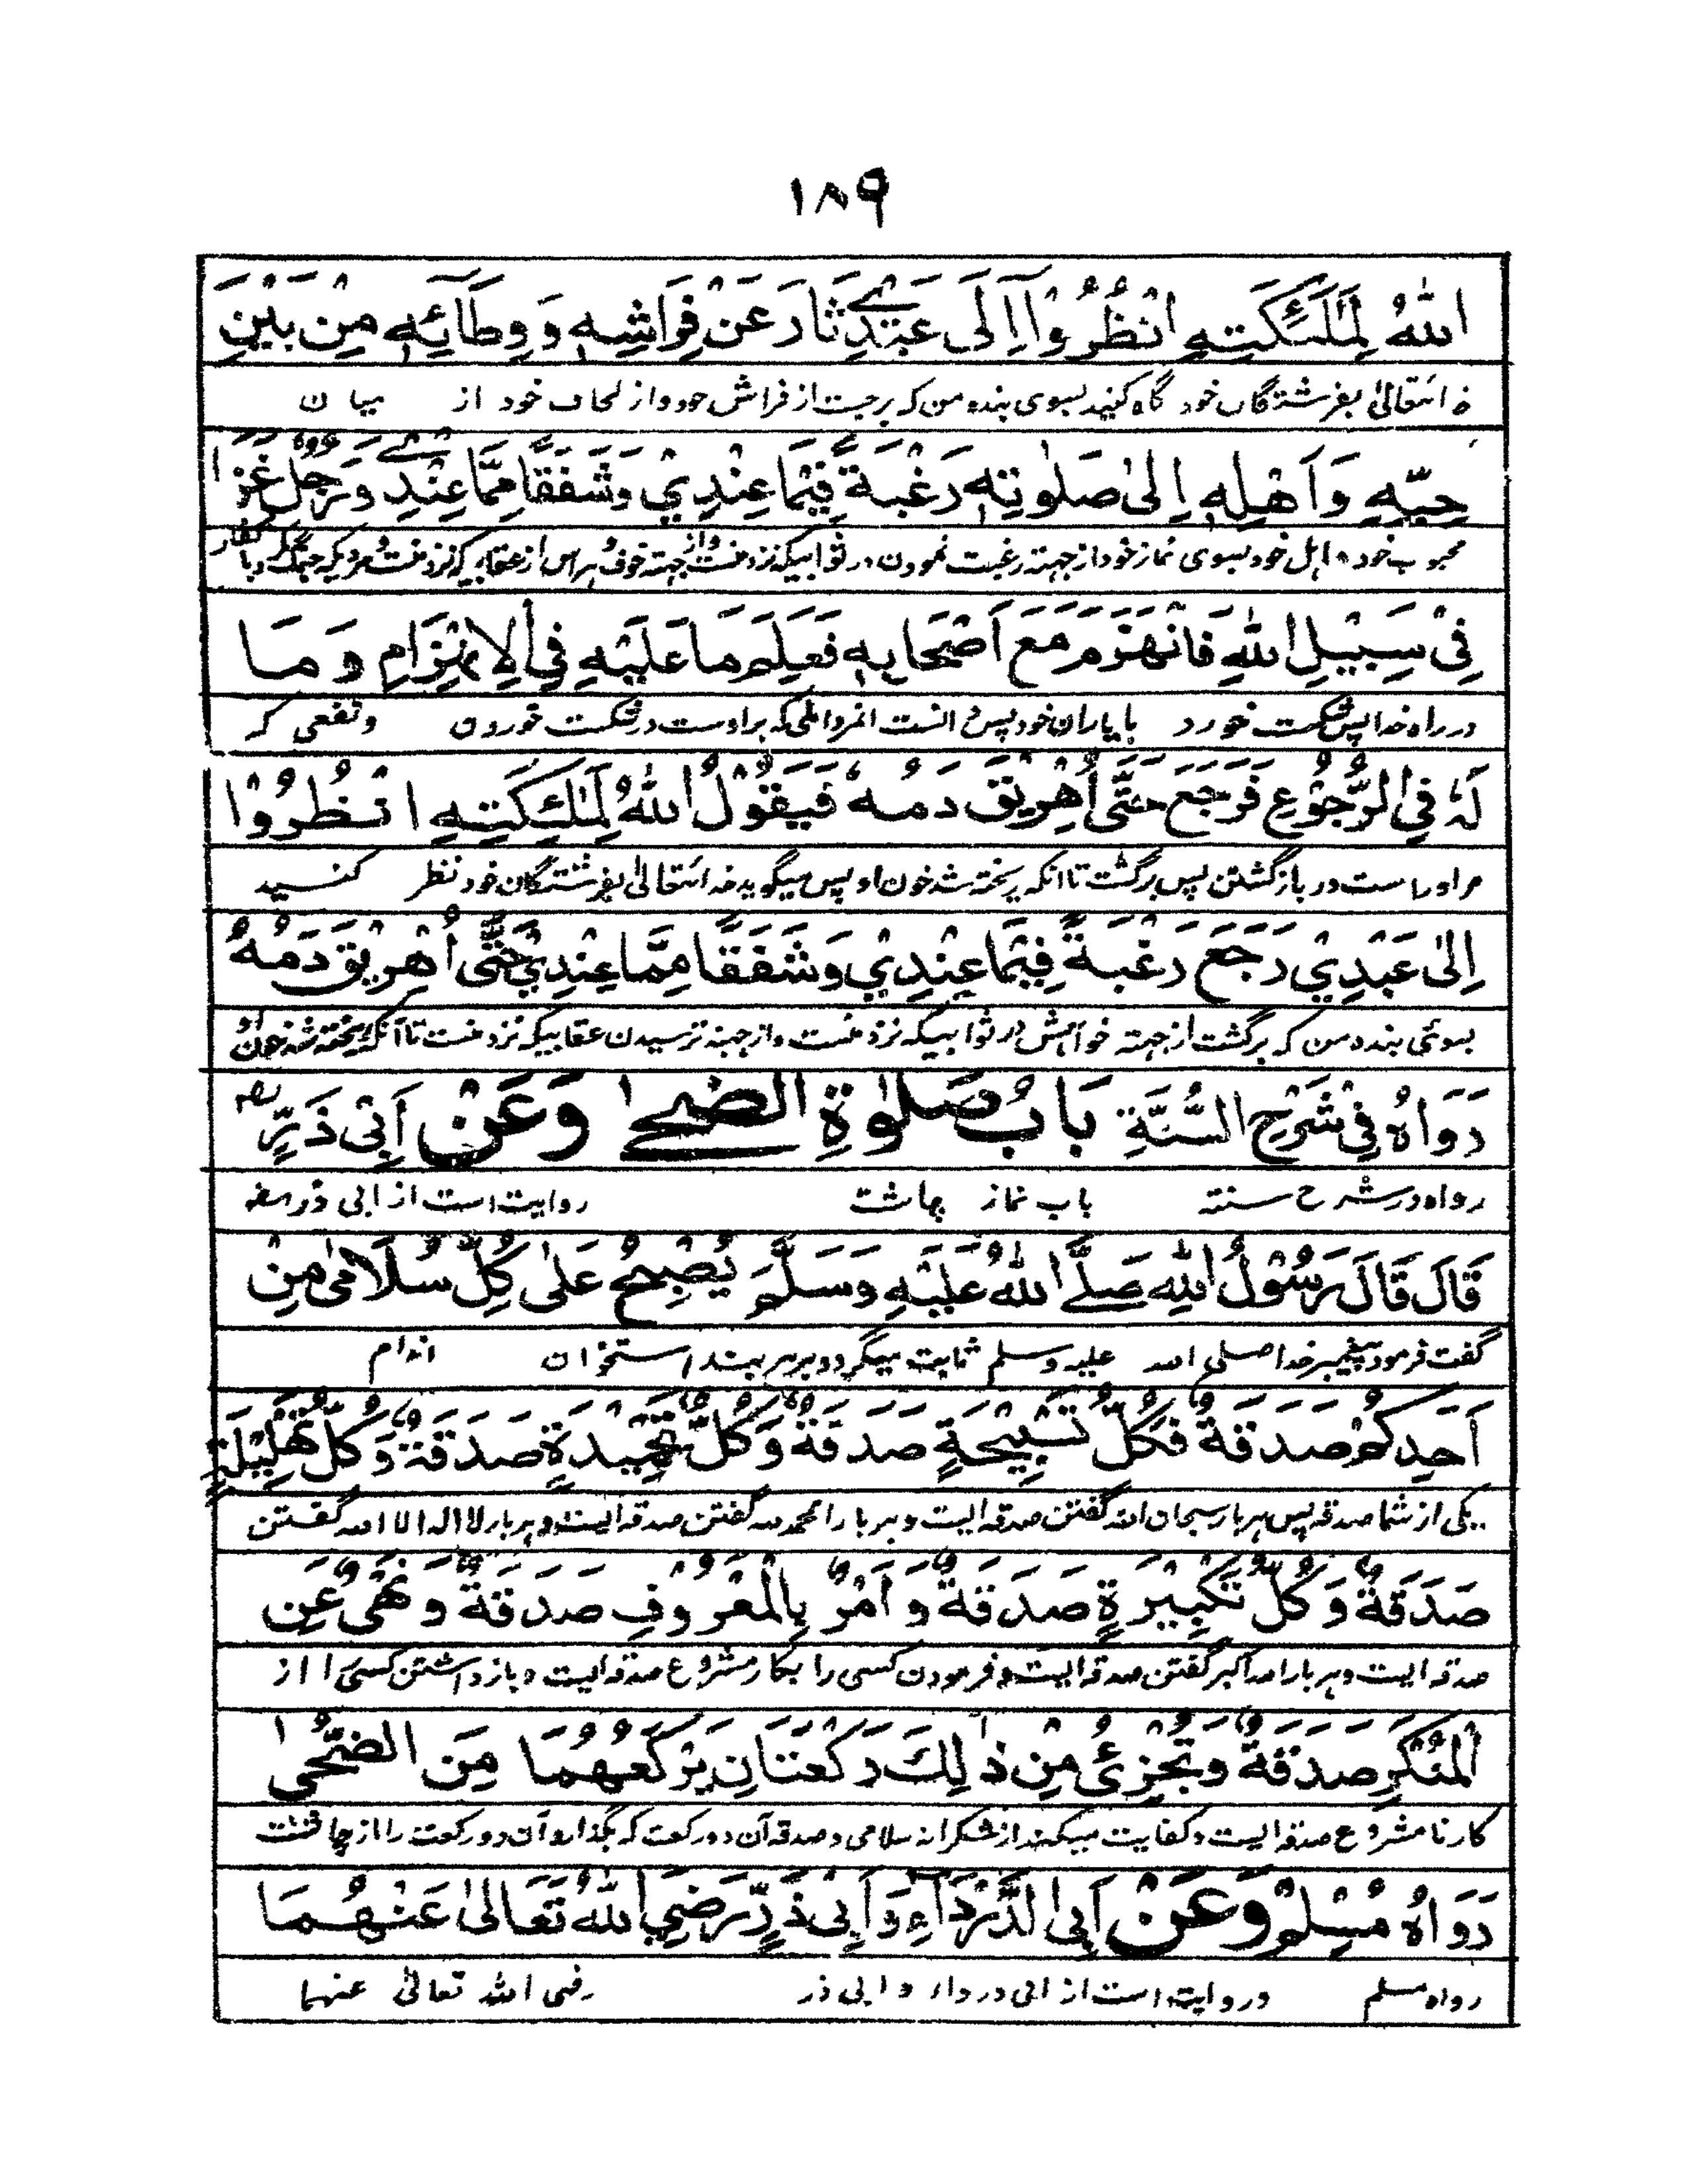 ١٨٩
اللهُ لِمَلٰئِكَتِهِ انْظُرُوْا اِلَى عَبْدِيْ ثَارَ عَنْ فِرَاشِهِ وَوِطَائِهِ مِنْ بَيْنِ
خدائتعالیٰ بفرشتگان خود نگاه کنید بسوی بنده من که برجست از فراش خود واز لحاف خود از میان
حِبِّهِ وَاَهْلِهِ اِلىٰ صَلٰوتِهِ رَغْبَةً فِيْمَا عِنْدِيْ وَشَفَقًا مِمَّا عِنْدِيْ وَرَجُلٌ غَزَا
محبوب خود و اهل خود بسوی نماز خود از جهته رغبت نمودن در ثوابیکه نزد منست واز جهته خوف وهراس از عقابیکه نزد منست ومردیکه جنگ کرد با کفار
فِيْ سَبِيْلِ اللهِ فَانْهَزَمَ مَعَ اَصْحَابِهِ فَعَلِمَ مَا عَلَيْهِ فِي الْاِنْهِزَامِ وَمَا
در راه خدا پس شکست خورد با یاران خود پس دانست که براوست در شکست خوردن ونفعی که
لَهُ فِي الرُّجُوْعِ فَرَجَعَ حَتّٰى اُهْرِيْقَ دَمُهُ فَيَقُوْلُ اللهُ لِمَلٰئِكَتِهِ انْظُرُوْا
مراوراست در بازگشتن پس برگشت تا انکه ریخته شد خون او پس میگوید خدائتعالیٰ بفرشتگان خود نظر کنید
اِلىٰ عَبْدِيْ رَجَعَ رَغْبَةً فِيْمَا عِنْدِيْ وَشَفَقًا مِمَّا عِنْدِيْ حَتّٰى اُهْرِيْقَ دَمُهُ
بسوئی بنده من که برگشت از جهته خواهش در ثوابیکه نزد منست واز جهته ترسیدن عقابیکه نزد منست تا آنکه ریخته شد خون او
رَوَاهُ فِيْ شَرْحِ السُّنَّةِ بَابُ صَلٰوةِ الضُّحىٰ وَعَنْ اَبِيْ ذَرٍّ رضہ
رواه در شرح سنته باب نماز چاشت روایت است از ابی ذر رضہ
قَالَ قَالَ رَسُوْلُ اللهِ صَلَّے اللهُ عَلَيْهِ وَسَلَّمَ يُصْبِحُ عَلىٰ كُلِّ سُلَامىٰ مِنْ
گفت فرمود پیغمبر خدا صلی الله علیه وسلم ثابت میگردد بر هر بند استخوان اندام
اَحَدِكُمْ صَدَقَةٌ فَكُلُّ تَسْبِيْحَةٍ صَدَقَةٌ وَكُلُّ تَحْمِيْدَةٍ صَدَقَةٌ وَكُلُّ تَهْلِيْلَةٍ
یکی از شما صدقه پس هربار سبحان الله گفتن صدقه ایست وهربار الحمدلله گفتن صدقه ایست وهربار لااله الا الله گفتن
صَدَقَةٌ وَكُلُّ تَكْبِيْرَةٍ صَدَقَةٌ وَ اَمْرٌ بِالْمَعْرُوْفِ صَدَقَةٌ وَنَهْىٌ عَنِ
صدقه ایست وهربار الله اکبر گفتن صدقه ایست وفرمودن کسی را بکار مشروع صدقه ایست وبازداشتن کسی را از
الْمُنْكَرِ صَدَقَةٌ وَتُجْزِئُ مِنْ ذٰلِكَ رَكْعَتَانِ يَرْكَعُهُمَا مِنَ الضُّحىٰ
کار نامشروع صدقه ایست وکفایت میکند از شکرانه سلامی وصدقه آن دورکعت که بگذارد آن دورکعت را از چاشت
رَوَاهُ مُسْلِمٌ وَعَنْ اَبِي الدَّرْدَاءِ وَاَبِيْ ذَرٍّ رَضِيَ اللهُ تَعَالىٰ عَنْهُمَا
رواه مسلم وروایت است از ابی درداء و ابی ذر رضی الله تعالیٰ عنهما